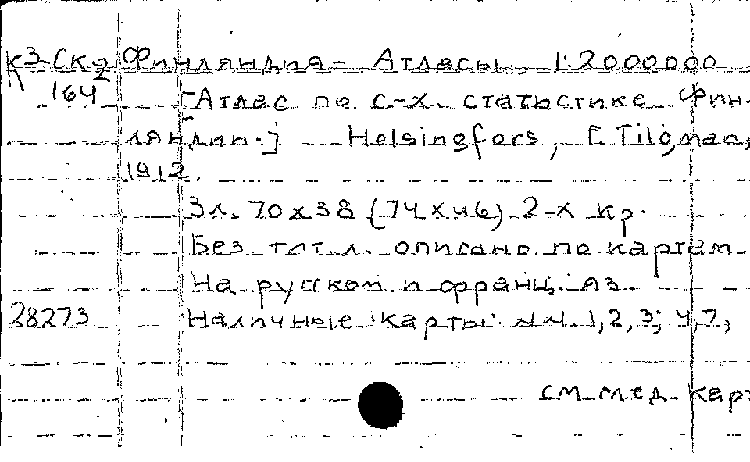 К3-Ск2 Финляндия - Атласы 1:2000000
164 [Атлас по с-х. статистике Фин-
ляндии.] Helsingfors, [Tilgman,
1912.
3л. 70х38 (74х46) 2-х кр.
Без тит. л. описано по картам
На русском и франц. яз.
28273 Наличные карты: №№. 1, 2, 3, 4, 7,
см. след. кар